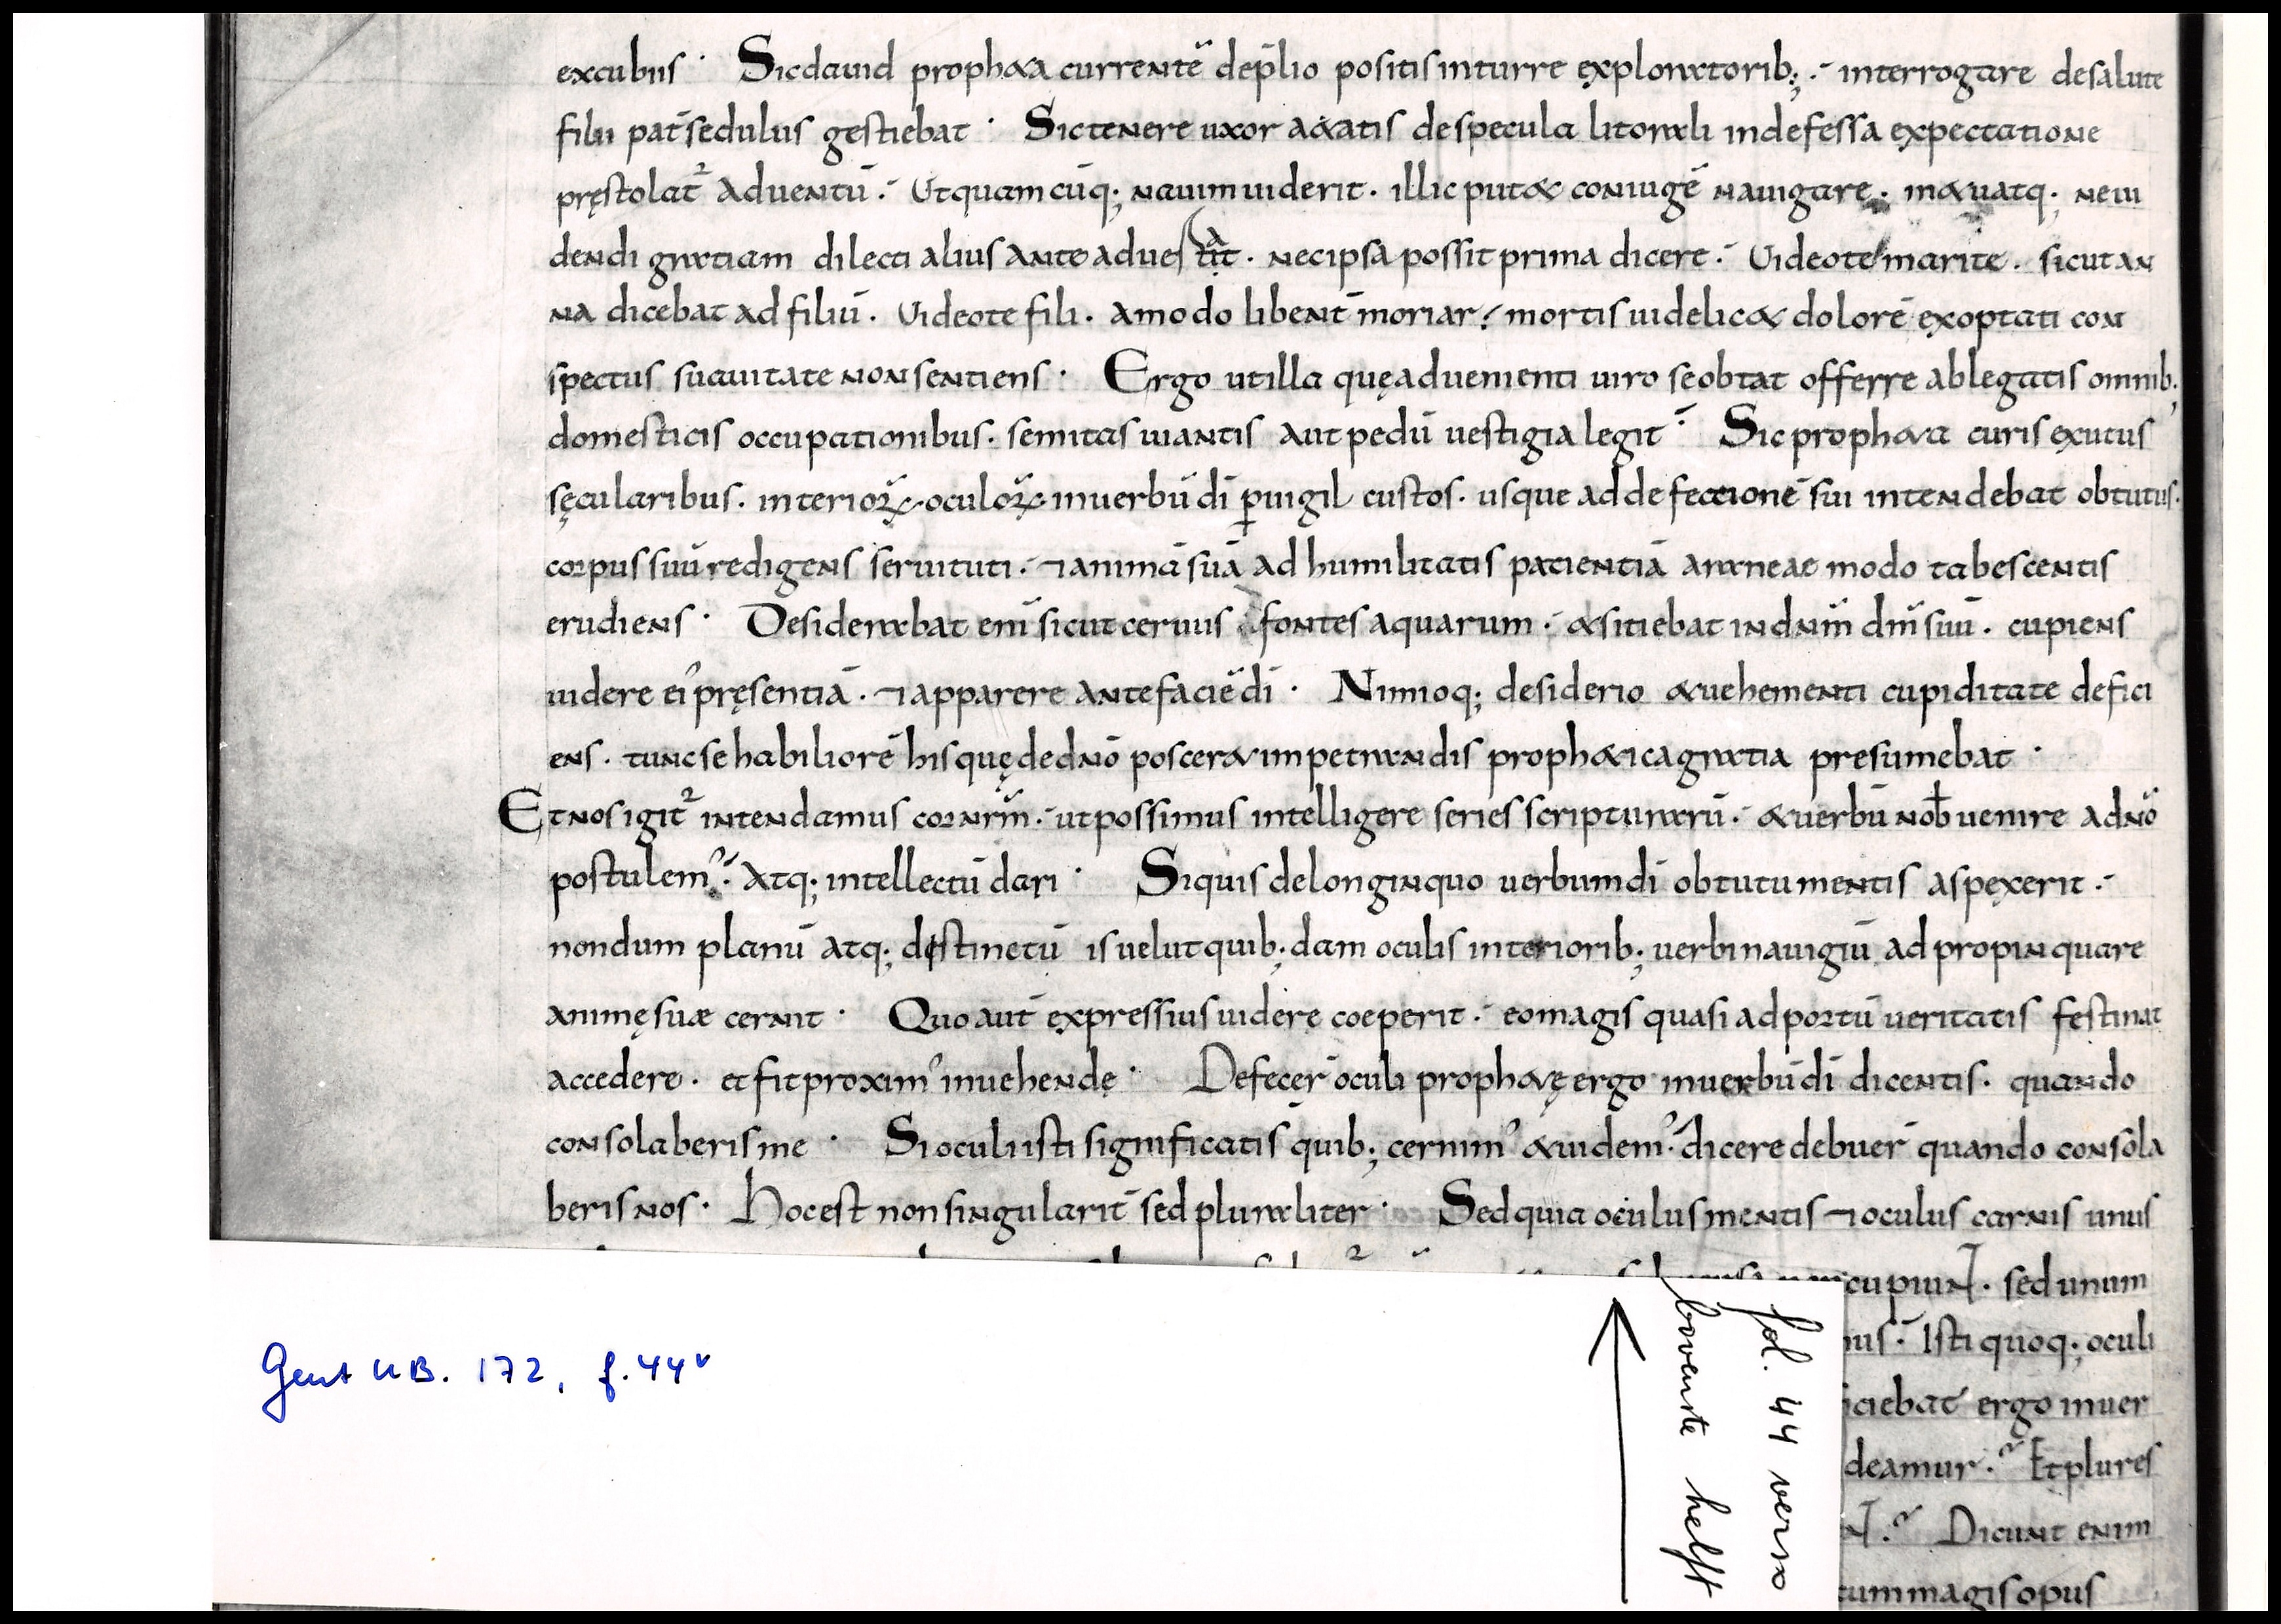 excubiis · Sic dauid prophæa currentē de p̄lio positis in turre exploratorib; .- interrogare de salute
filii pat̄ sedulus gestiebat · Sic tenere uxor ætatis de specula litorali indefessa expectatione
pręstolat᷑ aduentū .- Ut quamcūq; nauim uiderit . illic putet coniugē nauigare . metuatq; ne ui
dendi gratiam dilecti alius ante . nec ipsa possit prima dicere .- Uideo te marite . sicut an
na dicebat ad filiū . Uideo te fili . amodo libent̄ moriar . mortis uidelicet dolorē exoptati con
spectus suauitate non sentiens · Ergo ut illa quę aduenienti uiro se obtat offerre ablegatis omnib;
domesticis occupationibus . semitas uiantis aut pedū uestigia legit .- Sic propheta curis exutus
sęcularibus . interioꝝ oculoꝝ in uerbū dī ꝑuigil custos . usque ad defectionē sui intendebat obtutus .
corpus suū redigens seruituti .- ⁊ animā suā ad humilitatis patientiā araneae modo tabescentis
erudiens · Desiderabat enī sicut ceruus fontes aquarum .- & sitiebat in dn̄m dm̄ suū . cupiens
uidere ei᾽ pręsentiā . ⁊ apparere ante faciē dī · Nimioq; desiderio & uehementi cupiditate defici
ens . tunc se habiliorē his quę de dn̄o posceret impetrandis prophetica gratia presumebat ·
Et nos igit᷑ intendamus cor nr̄m .- ut possimus intelligere series scripturarū .- & uerbū nob̄ uenire a dn̄o
postulem᾽ .- Atq; intellectū dari · Siquis de longinquo uerbum dī obtutu mentis aspexerit .-
nondum planū atq; distinctū is uelut quib;dam oculis interiorib; uerbi nauigiū adpropinquare
animę suæ cernit · Quo aut̄ expressius uidere coeperit .- eo magis quasi ad portū ueritatis festinat
accedere . et fit proxim᾽ inuehendę · Defecer̄ oculi prophetę ergo in uerbū dī dicentis . quando
consolaberis me · Si oculi isti significatis quib; cernim᾽ & uidem᾽ . dicere debuer̄ quando consola
beris nos · Hoc est non singularit̄ sed pluraliter · Sed quia oculus mentis ⁊ oculus carnis unus
cupiunt . sed unum
nus .- Isti quoq; oculi
iciebat ergo in uer
deamur . Et plures
Dicunt enim
tum magis opus
fol. 44 verso
bovenste helft
Gent UB. 172, f. 44v